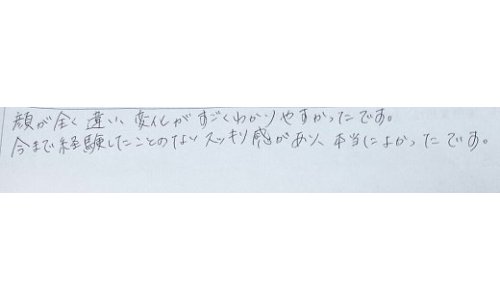 顔が全く違い、変化がすごくわかりやすかったです。
今まで経験したことのないスッキリ感があり、本当によかったです。